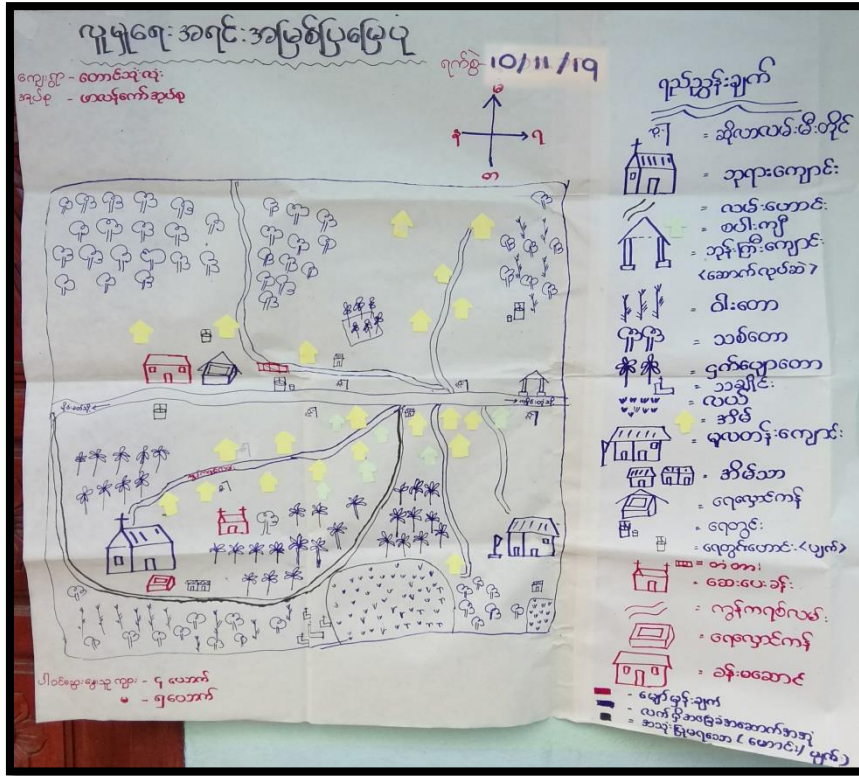 လူမှုရေးအရင်းအမြစ်ပြမြေပုံ
ရက်စွဲ- 10/11/19
ကျေးရွာ - တောင်သုံးလုံး
အုပ်စု - ဖာလန်ကော်အုပ်စု
မ
န
ရ
တ
ရည်ညွှန်းချက်
= ဆိုလာလမ်းမီးတိုင်
= ဘုရားကျောင်း
= လမ်းဟောင်း
= စပါးကျီ
= ဘုန်းကြီးကျောင်း
<ဆောက်လုပ်ဆဲ>
= ဝါးတော
= သစ်တော
= ငှက်ပျောတော
= သင်္ချိုင်း
= လယ်
= အိမ်
= မူလတန်းကျောင်း
= အိမ်သာ
= ရေလှောင်ကန်
= ရေတွင်း
= ရေတွင်းဟောင်း <ပျက်>
= တံတား
= ဆေးပေးခန်း
= ကွန်ကရစ်လမ်း
= ရေလှောင်ကန်
= ခန်းမဆောင်
- မျှော်မှန်းချက်
- လက်ရှိအခြေခံအဆောက်အအုံ
= အသုံးပြုမရသော (ဟောင်း/ပျက်)
ပါဝင်ဆွေးနွေးသူ ကျား - ၄ ယောက်
မ - ၅ ယောက်